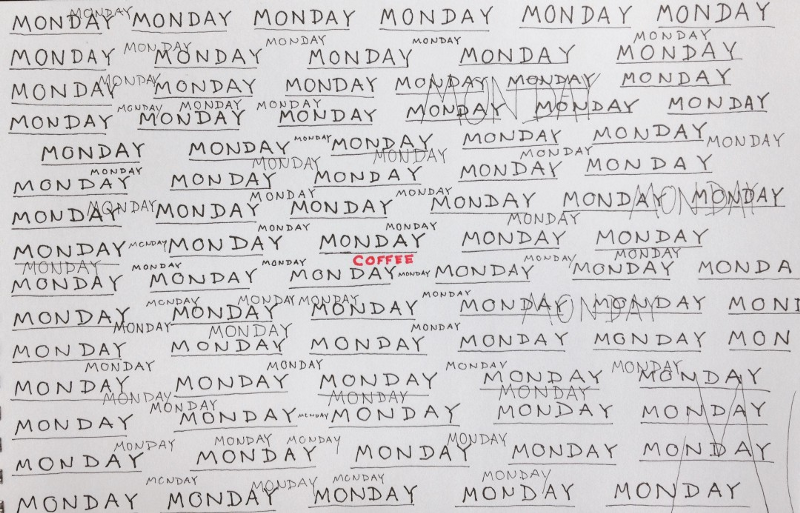 MONDAY MONDAY MONDAY MONDAY MONDAY MONDAY MONDAY
MONDAY MONDAY MONDAY MONDAY
MONDAY MONDAY MONDAY MONDAY MONDAY
MONDAY
MONDAY MONDAY MONDAY MONDAY MONDAY MONDAY
MONDAY
MONDAY MONDAY MONDAY
MONDAY MONDAY MONDAY MONDAY MONDAY MONDAY
MONDAY MONDAY MONDAY MONDAY MONDAY MONDAY MONDAY
MONDAY MONDAY MONDAY MONDAY
MONDAY MONDAY MONDAY MONDAY MONDAY
MONDAY MONDAY
MONDAY MONDAY MONDAY MONDAY MONDAY MONDAY MONDAY MONDAY
MONDAY MONDAY
MONDAY MONDAY MONDAY MONDAY MONDAY MONDAY
COFFEE
MONDAY MONDAY MONDAY MONDAY MONDAY
MONDAY MONDAY MONDAY MONDAY MONDAY MONDAY MONDA
MONDAY MONDAY MONDAY MONDAY
MONDAY MONDAY MONDAY MONDAY MONDAY MONDAY MON
MONDAY MONDAY MONDAY
MONDAY MONDAY MONDAY MONDAY MONDAY MON
MONDAY MONDAY MONDAY MONDAY
MONDAY MONDAY MONDAY MONDAY MONDAY
MONDAY MONDAY MONDAY MONDAY
MONDAY MONDAY MONDAY MONDAY MONDAY MONDAY
MONDAY MONDAY MONDAY MONDAY
MONDAY MONDAY MONDAY MONDAY MONDAY
MONDAY MONDAY MONDAY MONDAY
MONDAY MONDAY MONDAY MONDAY MONDAY